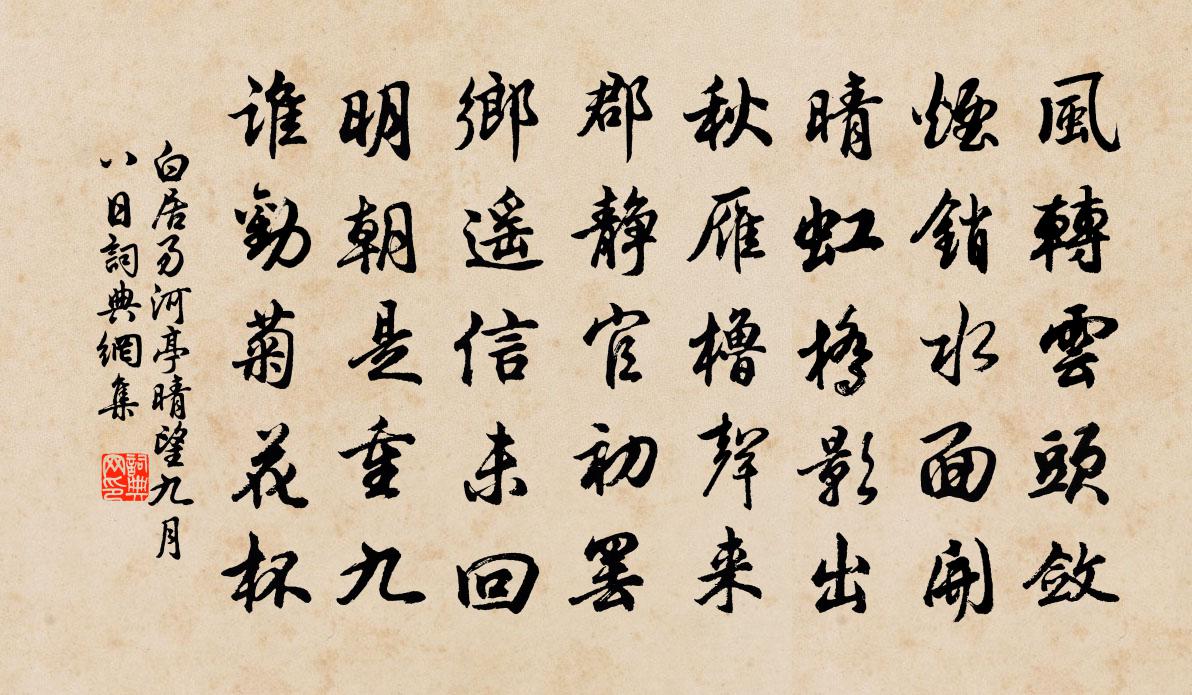 風轉雲頭斂
煙銷水面開
晴虹橋影出
秋雁櫓聲来
郡靜官初罷
鄉遥信未回
明朝是重九
誰勸菊花杯
白居易河亭晴望九月
八日詞典網集
詞典
网印